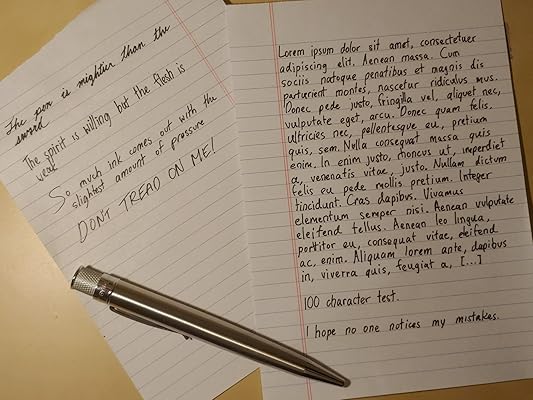 The pen is mightier than the
sword
The spirit is willing but the flesh is
weak
So much ink comes out with the
slightest amount of pressure
DON'T TREAD ON ME!
Lorem ipsum dolor sit amet, consectetuer
adipiscing elit. Aenean massa. Cum
sociis natoque penatibus et magnis dis
parturient montes, nascetur ridiculus mus.
Donec pede justo, fringilla vel, aliquet nec,
vulputate eget, arcu. Donec quam felis.
ultricies nec, pellentesque eu, pretium
quis, sem. Nulla consequat massa quis
enim. In enim justo, rhoncus ut, imperdiet
a, venenatis vitae, justo. Nullam dictum
felis eu pede mollis pretium. Integer
tincidunt. Cras dapibus. Vivamus
elementum semper nisi. Aenean vulputate
eleifend tellus. Aenean leo lingua,
portitor eu, consequat vitae, eleifend
ac, enim. Aliquam lorem ante, dapibus
in, viverra quis, feugiat a, [...]
100 character test.
I hope no one notices my mistakes.